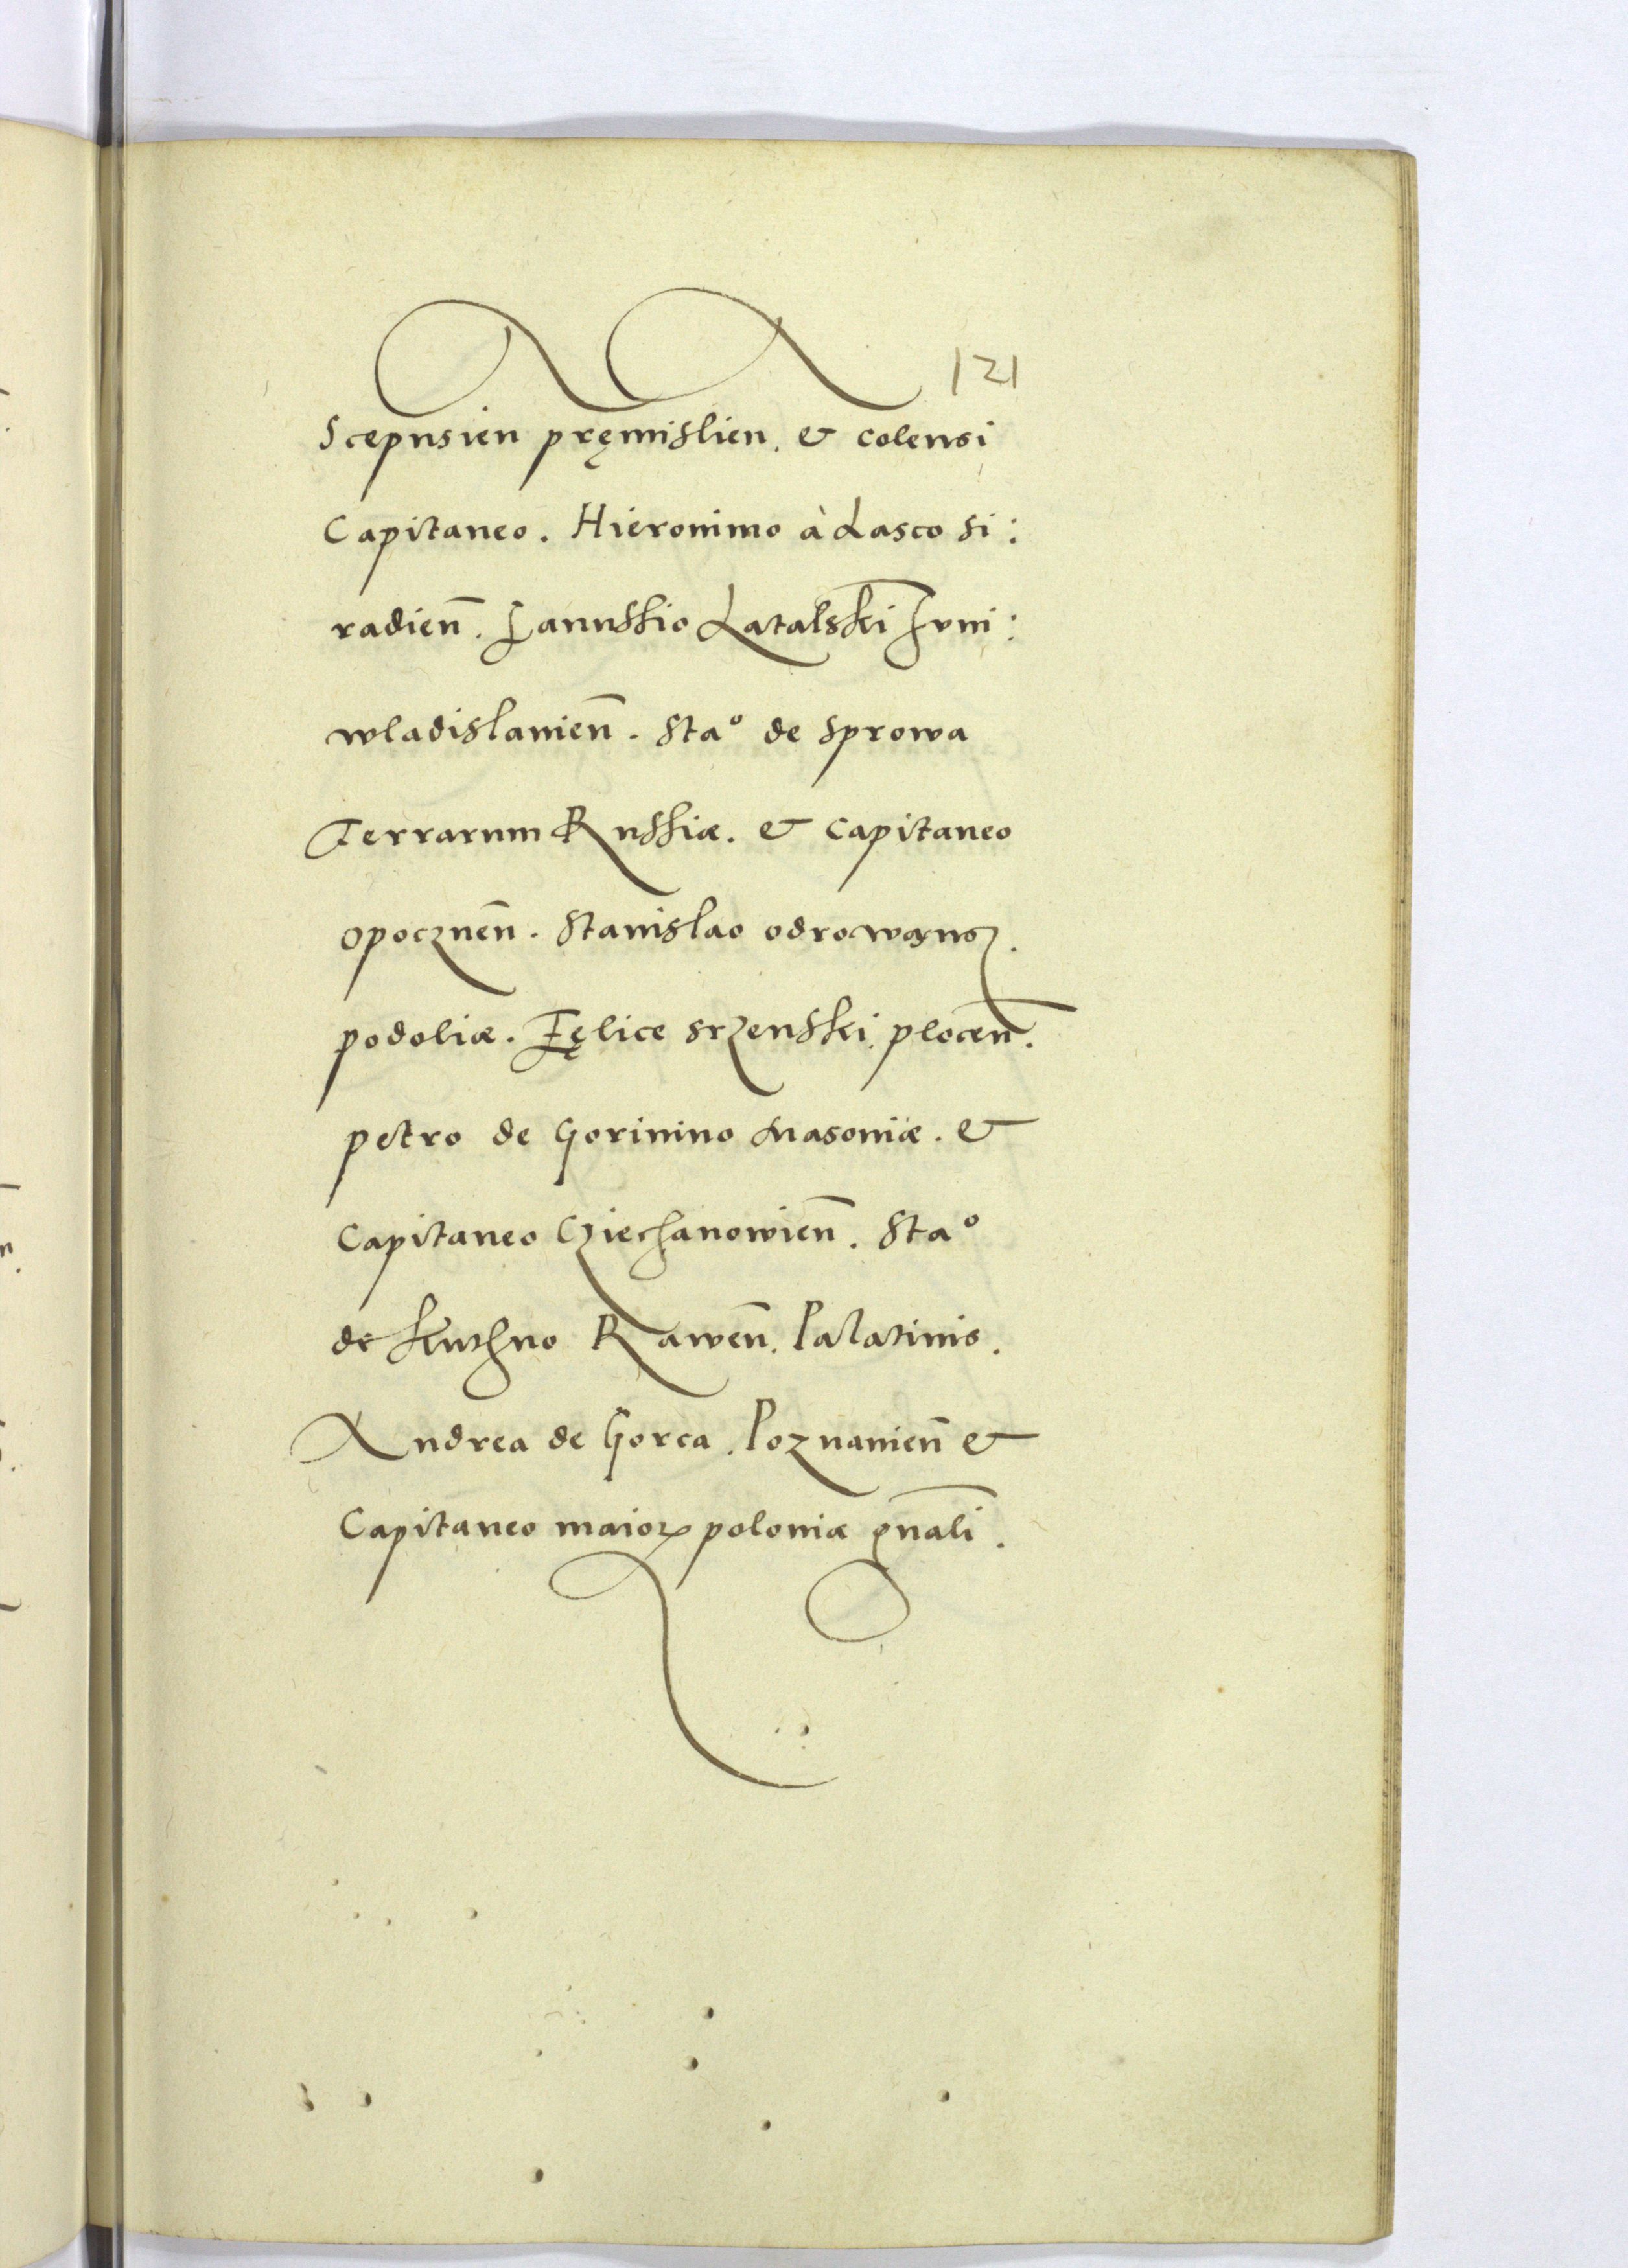 121
Scepusien pręmislien. & colensi
Capitaneo. Hieronimo à Lasco si:
radieñ. Ianussio Latalski Iuni:
wladislauieñ. Sta° de Sprowa
Terrarum Russiæ. & Capitaneo
opocznẽn. Stanislao odrowąnsz.
podoliæ. Fęlice srzenski plocẽn.
petro de Gorinino Masouiæ. &
Capitaneo Cziechanowieñ. Sta°
de Kuthno Rawẽn. Palatinis.
Andrea de Gorca. Poznanieñ &
Capitaneo maioꝝ poloniæ gñali.